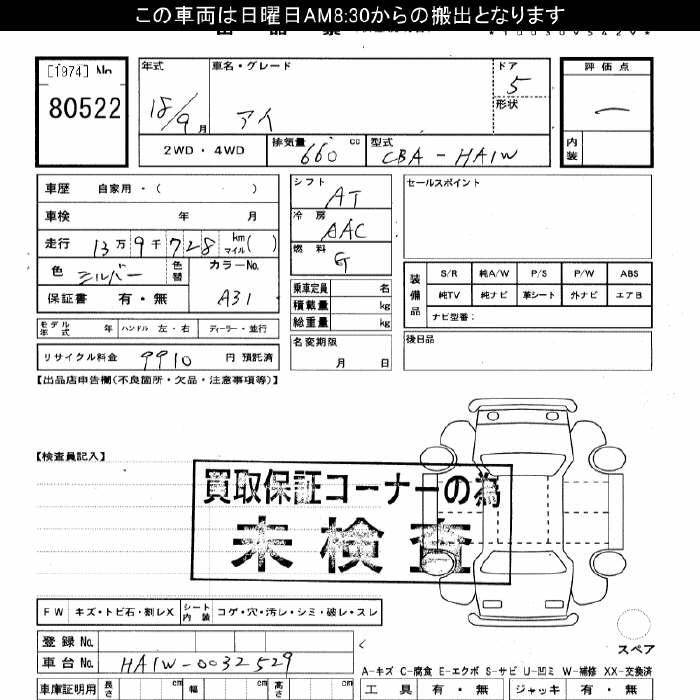 この車両は日曜日AM8:30からの搬出となります
[1974] No
80522
年式
18/9 月
車名・グレード
アイ
ドア
5
形状
評価点
ー
内装
2WD・4WD
排気量 660 cc
型式 CBA-HA1W
車歴 自家用・( )
車検 年 月
走行 13万9千728 km マイル ( )
色 シルバー 色替
カラーNo. A31
保証書 有・無
シフト AT
冷房 AAC
燃料 G
乗車定員 名
積載量 kg
総重量 kg
セールスポイント
装備品
S/R 純A/W P/S P/W ABS
純TV 純ナビ 革シート 外ナビ エアB
ナビ型番:
モデル年式 年 ハンドル 左・右 ディーラー・並行
リサイクル料金 9910 円 預託済
名変期限 月 日
後日品
【出品店申告欄(不良箇所・欠品・注意事項等)】
【検査員記入】
買取保証コーナーの為
未検査
FW キズ・トビ石・割レX シート内装 コゲ・穴・汚レ・シミ・破レ・スレ
登録 No.
車台 No. HA1W-0032529
スペア
A-キズ C-腐食 E-エクボ S-サビ U-凹ミ W-補修 XX-交換済
車庫証明用 長さ cm 幅 cm 高さ cm
工具 有・無 ジャッキ 有・無